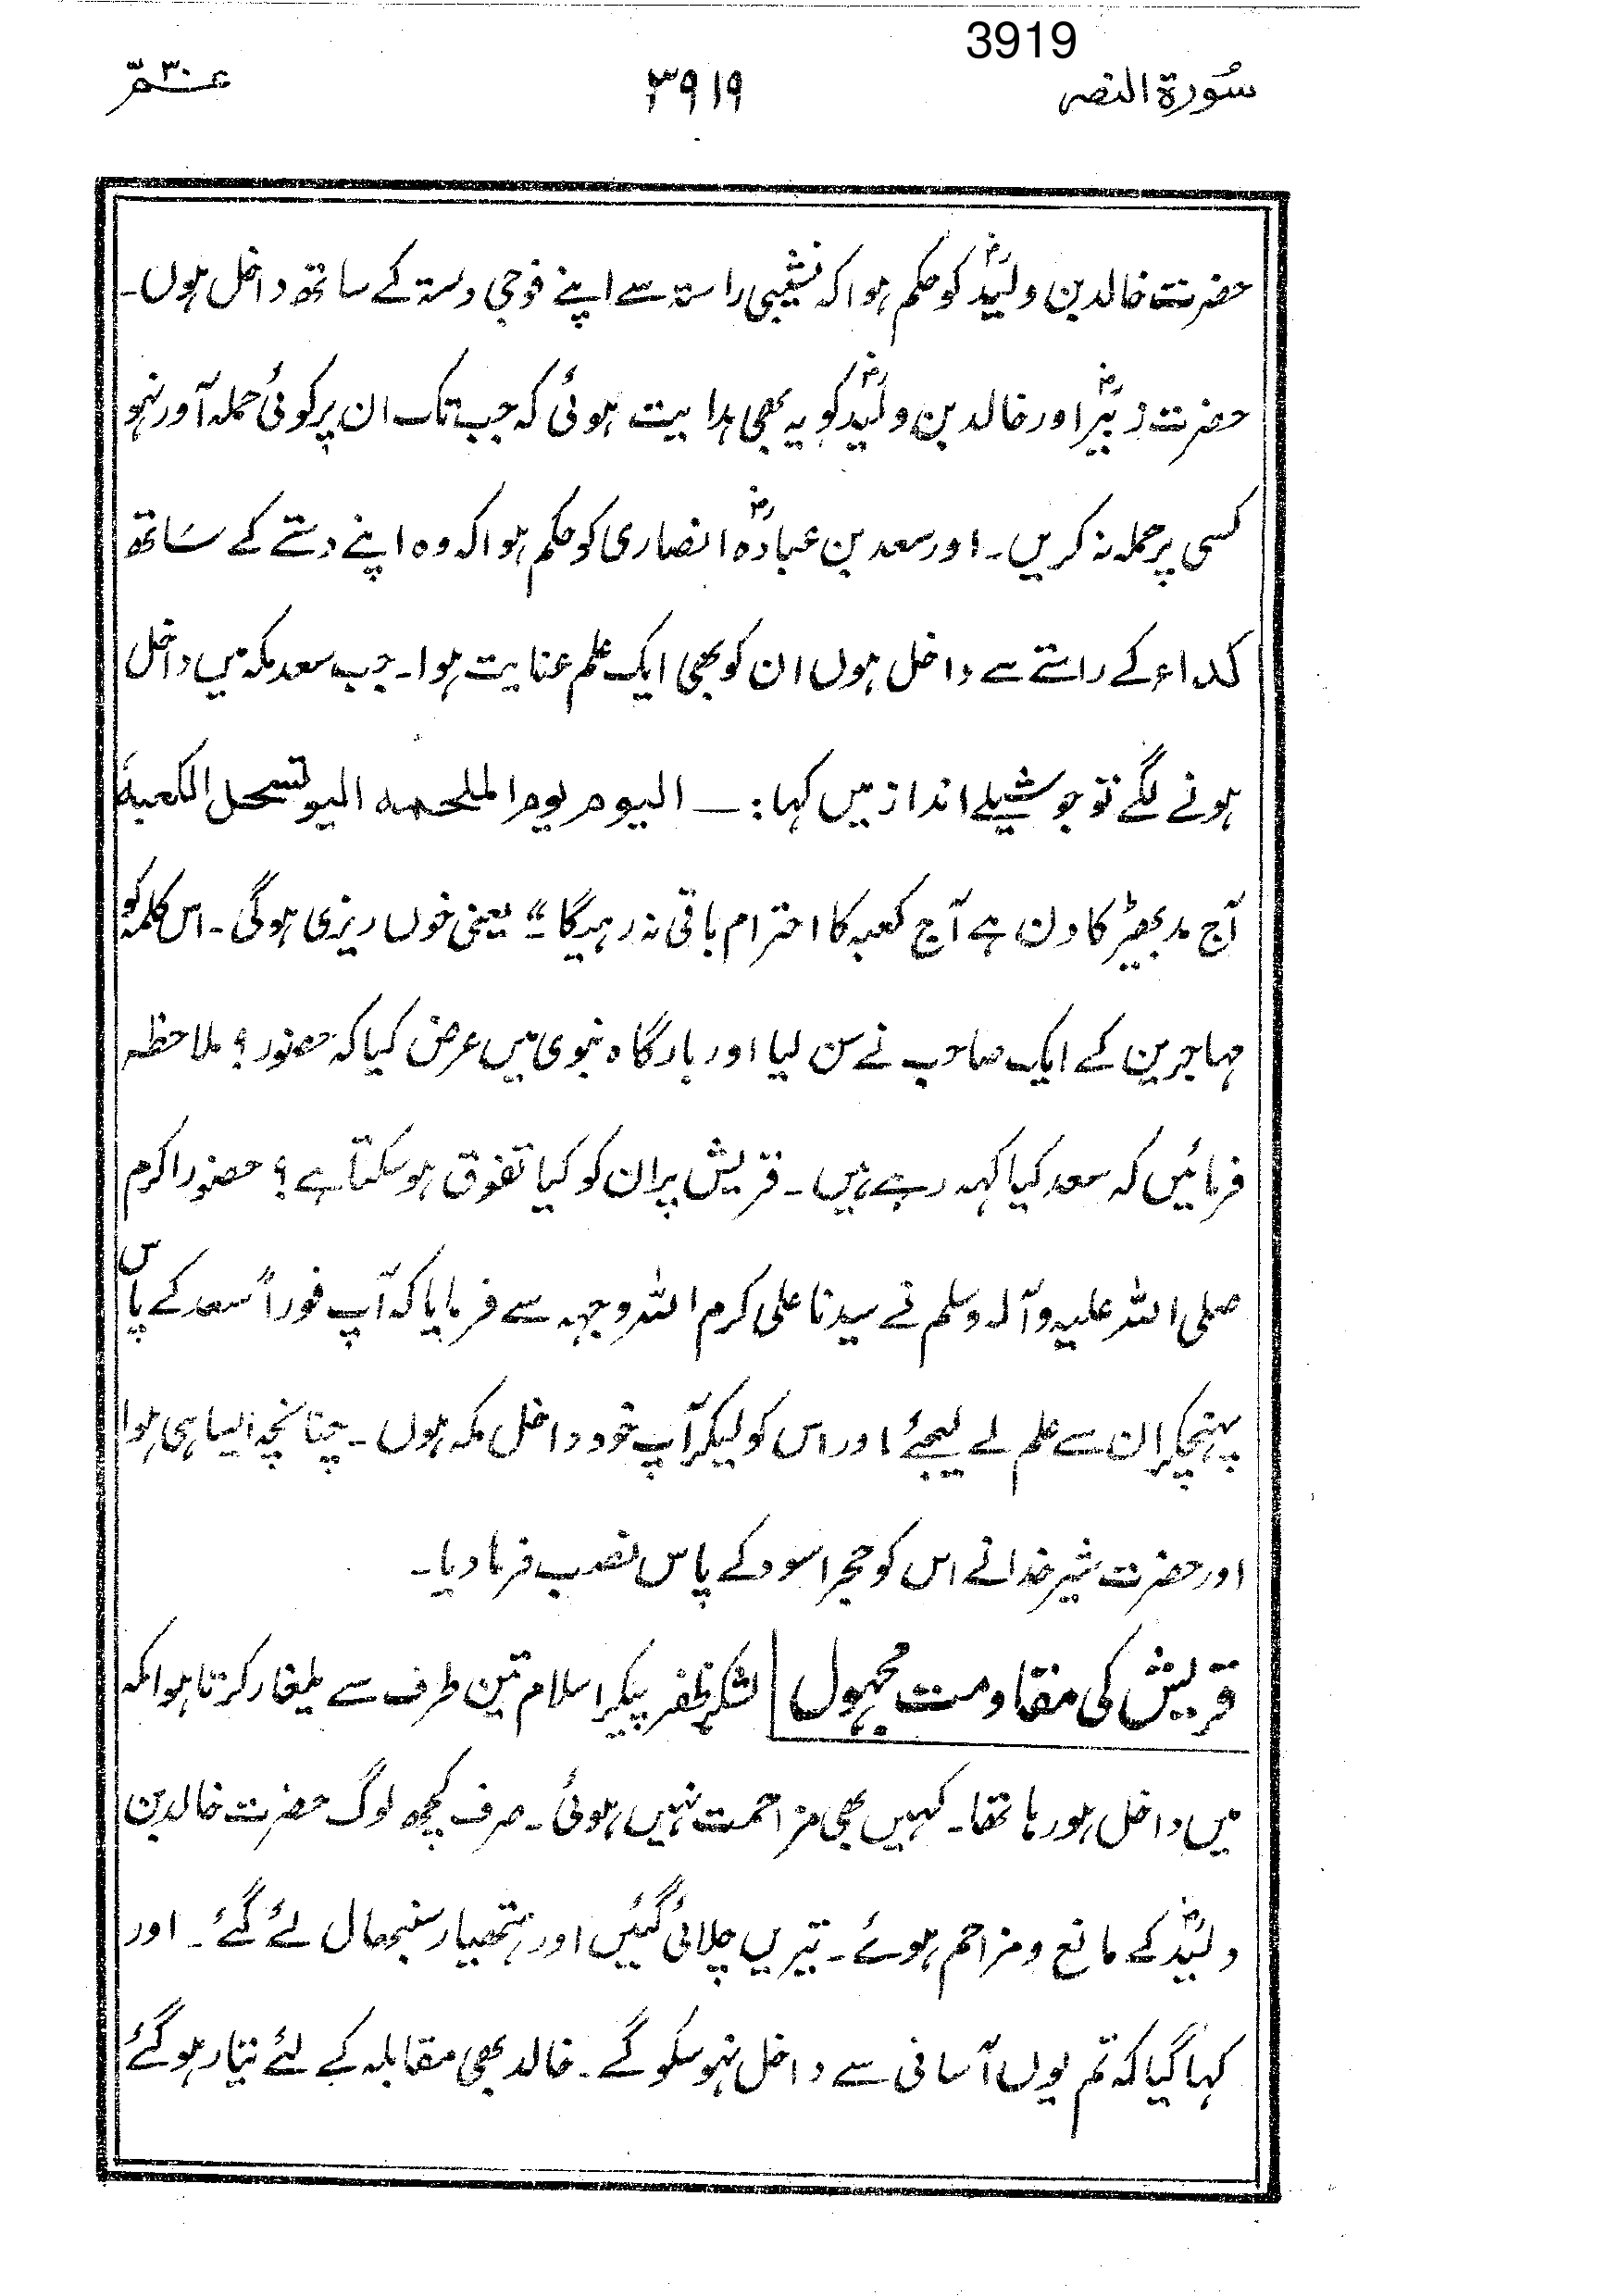 3919
سُورۃ النصر ۳۹۱۹ عــمّ ۳۰
حضرت خالد بن ولیدؓ کو حکم ہوا کہ نشیبی راستہ سے اپنے فوجی دستہ کے ساتھ داخل ہوں۔
حضرت زبیرؓ اور خالد بن ولیدؓ کو یہ بھی ہدایت ہوئی کہ جب تک ان پر کوئی حملہ آور نہو
کسی پر حملہ نہ کریں۔ اور سعد بن عبادہؓ انصاری کو حکم ہوا کہ وہ اپنے دستے کے سَاتھ
کداء کے راستے سے داخل ہوں ان کو بھی ایک علم عنایت ہوا۔ جب سعد مکہ میں داخل
ہونے لگے تو جوشیلے انداز میں کہا :ــ الیوم یوم الملحمہ الیو تسحل الکعبۃ
آج مڈبھیڑ کا دن ہے آج کعبہ کا احترام باقی نہ رہیگا۔“ یعنی خوں ریزی ہوگی۔ اس کلمہ کو
مہاجرین کے ایک صاحب نے سن لیا اور بارگاہ نبوی میں عرض کیا کہ حضور؟ ملاحظہ
فرمائیں کہ سعد کیا کہہ رہے ہیں۔ قریش پر ان کو کیا تفوق ہوسکتا ہے؟ حضور اکرم
صلی اللہ علیہ وآلہ وسلم نے سیدنا علی کرم اللہ وجہہ سے فرمایا کہ آپ فوراً سعد کے پاس
پہنچکر ان سے علم لے لیجئے اور اس کو لیکر آپ خود داخل مکہ ہوں۔ چنانچہ ایسا ہی ہوا
اور حضرت شیر خدا نے اس کو حجر اسود کے پاس نصب فرما دیا۔
قریش کی مقاومت مجہول لشکر ظفر پیکر اسلام تین طرف سے یلغار کرتا ہوا مکہ
میں داخل ہو رہا تھا۔ کہیں بھی مزاحمت نہیں ہوئی۔ صرف کچھ لوگ حضرت خالد بن
ولیدؓ کے مانع و مزاحم ہوئے۔ تیریں چلائی گئیں اور ہتھیار سنبھال لئے گئے۔ اور
کہا گیا کہ تم یوں آسانی سے داخل نہو سکو گے۔ خالد بھی مقابلہ کے لئے تیار ہو گئے